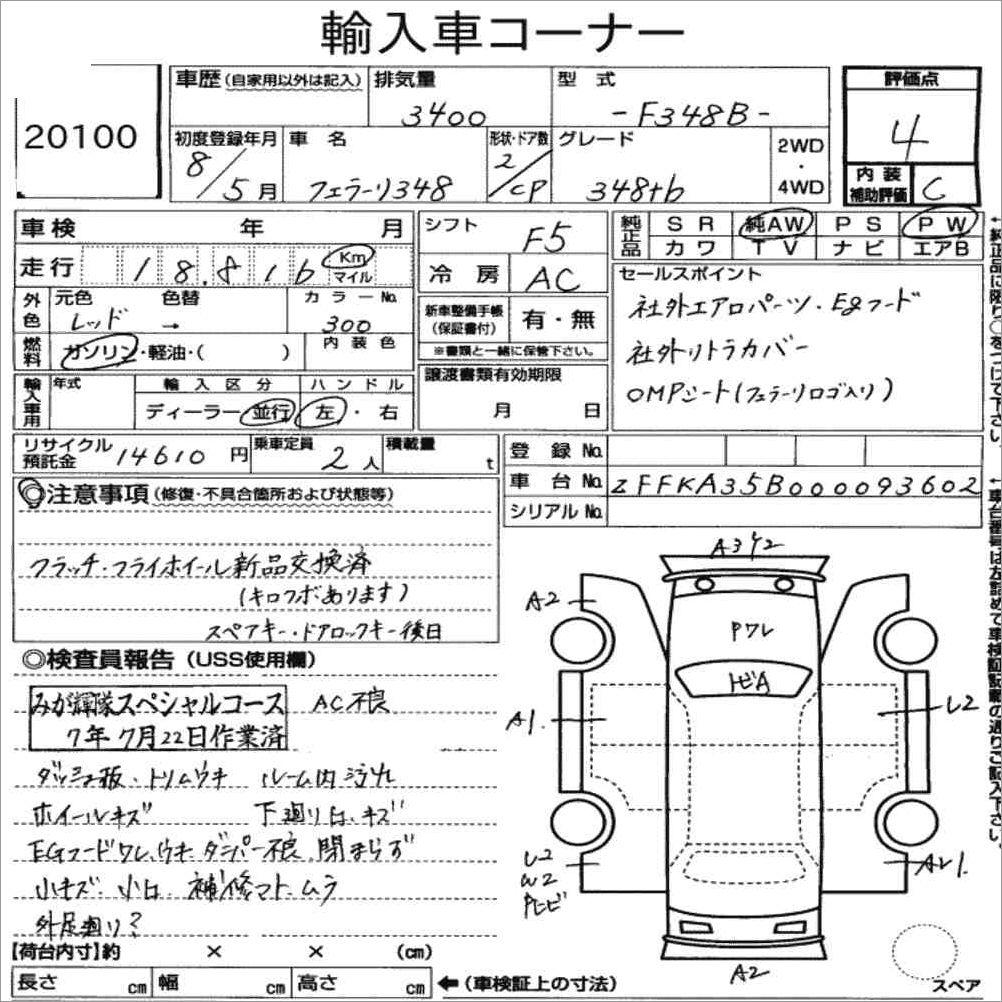 輸入車コーナー
20100
車歴(自家用以外は記入)
排気量
3400
型 式
-F348B-
評価点
4
初度登録年月
8/5月
車 名
フェラーリ348
形状・ドア数
2/CP
グレード
348tb
2WD
・
4WD
内 装
補助評価
C
車検 年 月
走行 18.816 Km
マイル
シフト
F5
冷 房
AC
純正品
SR 純AW PS PW
カワ TV ナビ エアB
セールスポイント
社外エアロパーツ・Egフード
社外リトラカバー
OMPシート(フェラーリロゴ入り)
外色
元色 色替 カラーNo.
レッド → 300
燃料
ガソリン・軽油・( )
内 装 色
新車整備手帳
(保証書付)
有・無
※書類と一緒に保管下さい。
輸入車用
年式
輸 入 区 分
ディーラー・並行
ハ ン ド ル
左・右
譲渡書類有効期限
月 日
リサイクル
預託金
14610 円
乗車定員
2人
積載量
t
登 録 No.
車 台 No. ZFFKA35B000093602
シリアル No.
←純正品に限り○をつけて下さい。
←車台番号は左詰めで車検証記載の通りご記入下さい。
◎注意事項(修復・不具合箇所および状態等)
クラッチ・フライホイール新品交換済
(キロクボあります)
スペアキー・ドアロックキー後日
◎検査員報告(USS使用欄)
みが輝隊スペシャルコース
7年7月22日作業済
AC不良
ダッシュ板・トリムウキ ルーム内汚れ
ホイールキズ 下廻り凹、キズ
EGフードワレ、ウキ ダンパー不良、閉まらず
小キズ 小凹 補修マト、ムラ
外足廻り?
A3Y2
A2
Pワレ
トビA
A1
U2
U2
W2
AU1
A2
スペア
【荷台内寸】約 × × (cm)
長さ cm 幅 cm 高さ cm ←(車検証上の寸法)